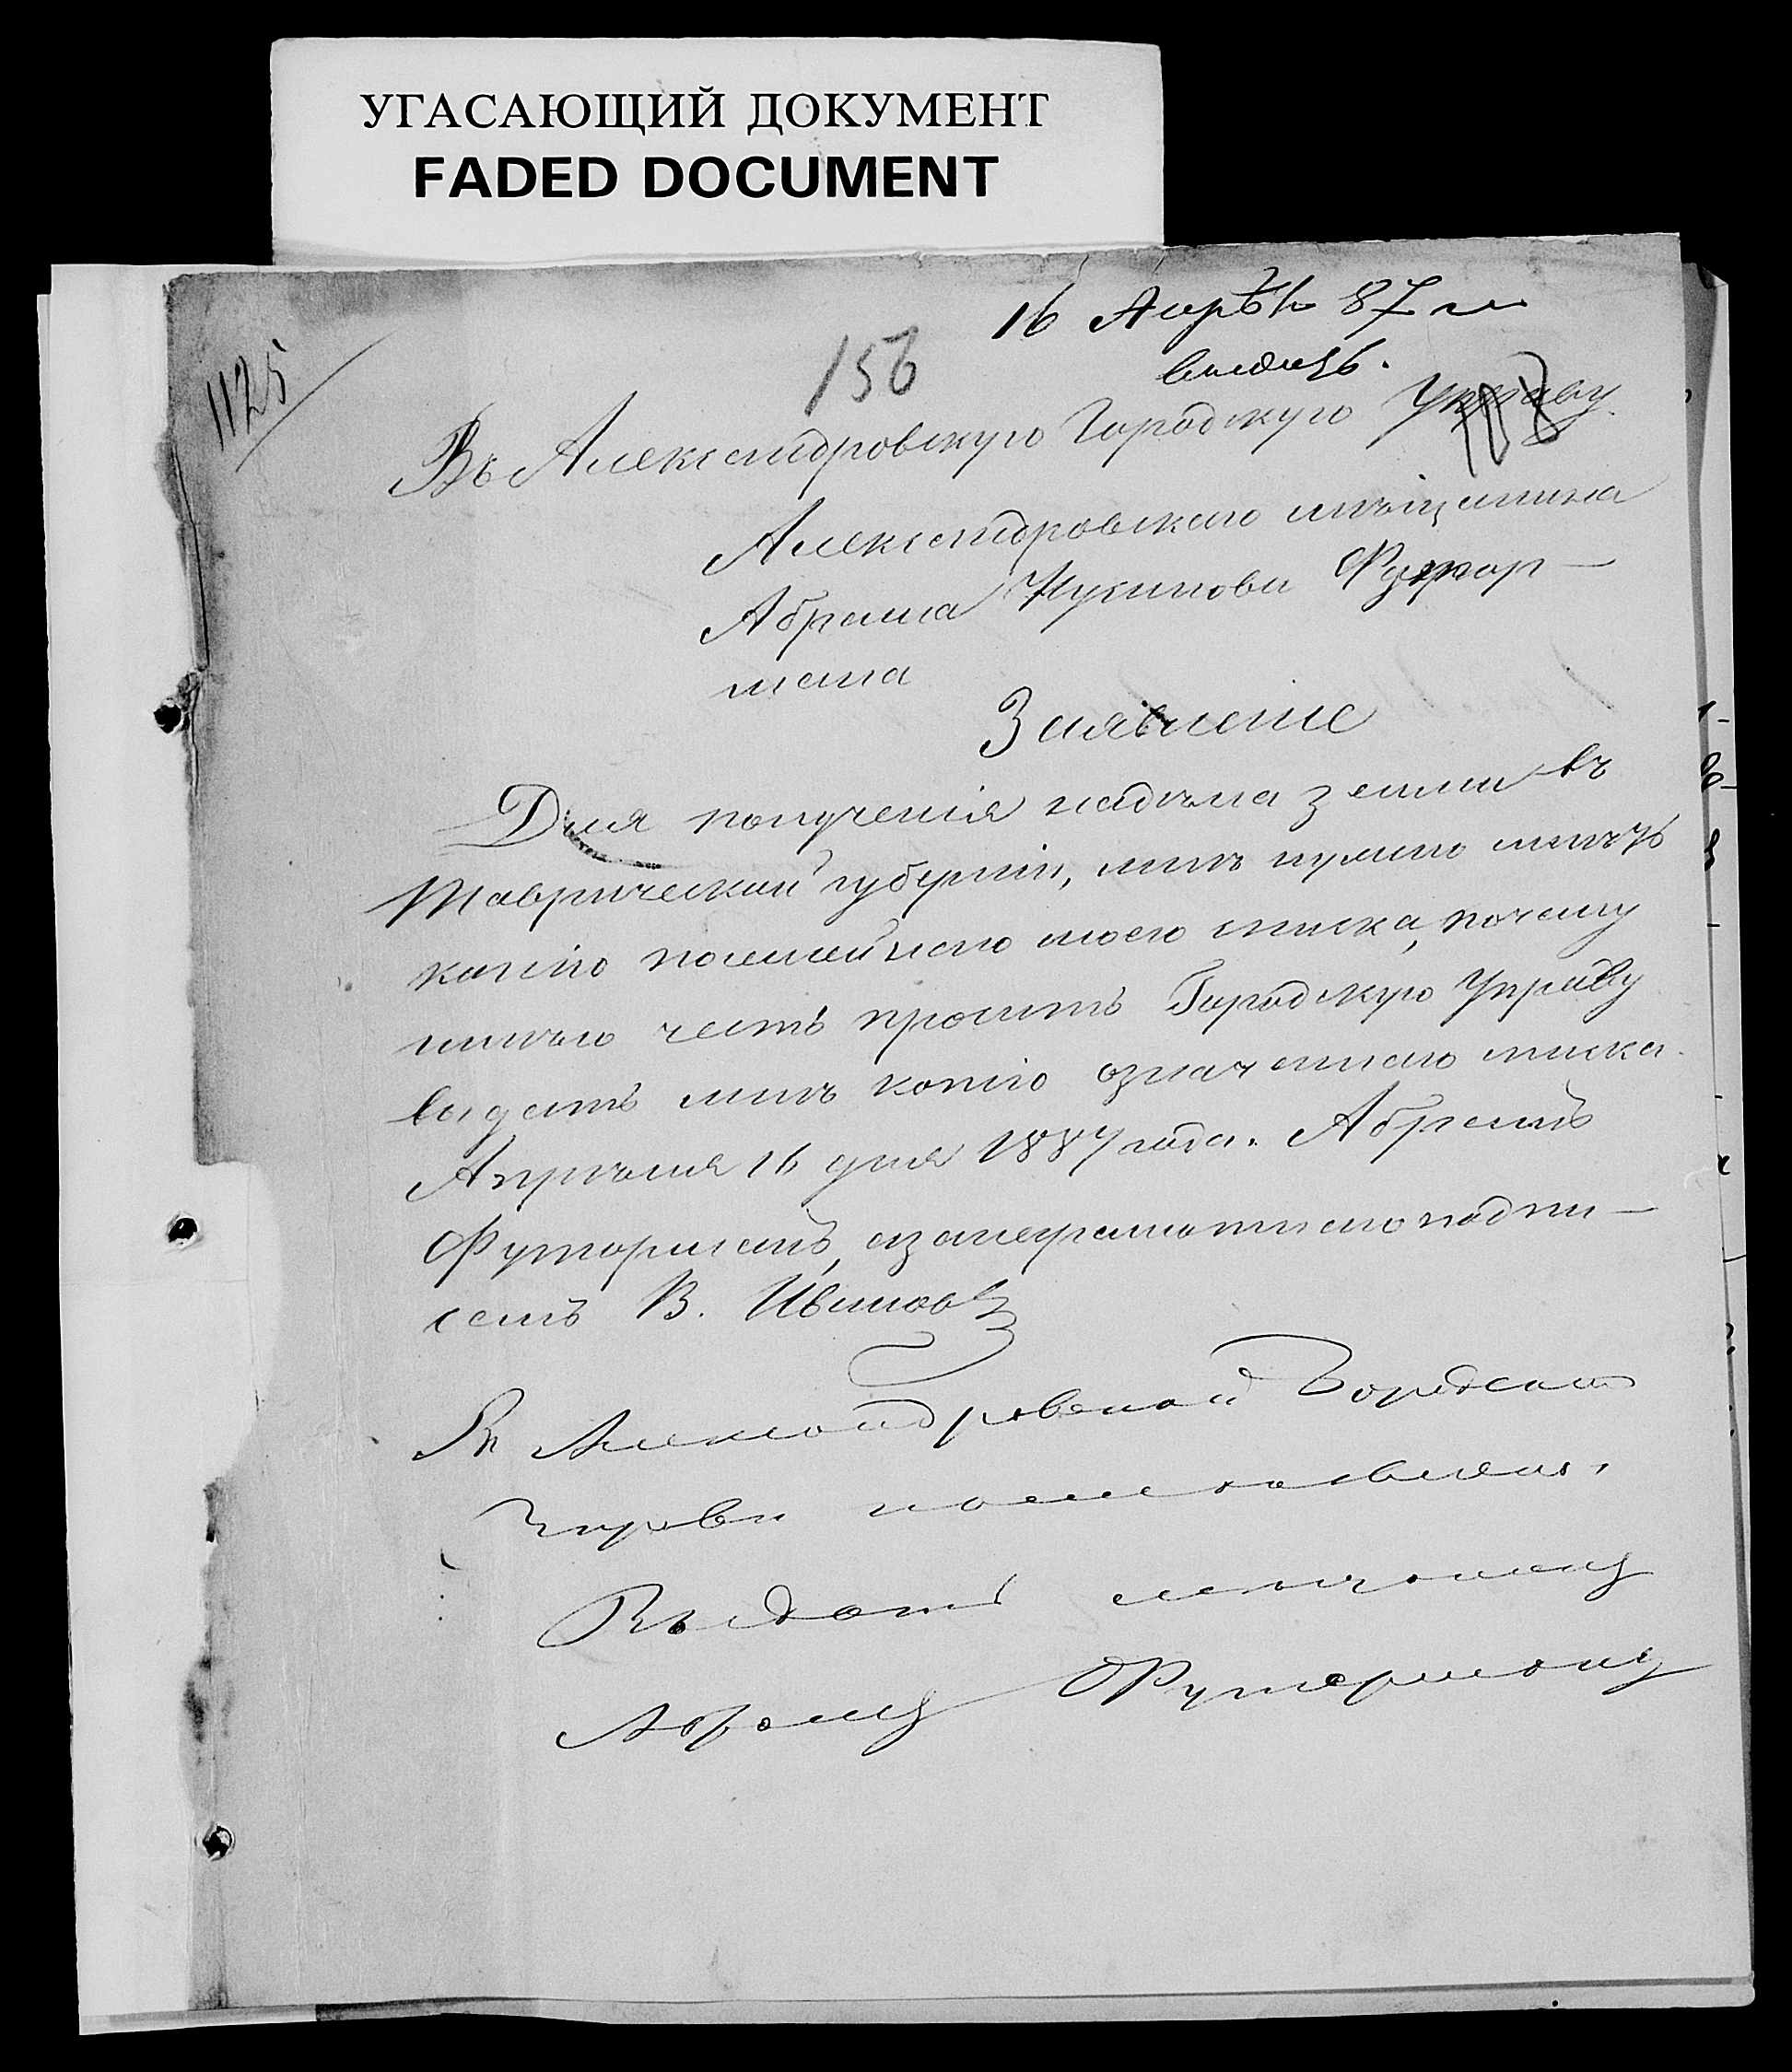 УГАСАЮЩИЙ ДОКУМЕНТ
FADED DOCUMENT
16 Апрѣл 87 г
1125
156
Въ Александровскую Городскую Управу
Александровскаго мѣщанина
Абрама Нухимова Футор-
мана
Заявленіе
Для полученія надѣла земли въ
Таврической губерніи, мнѣ нужно имѣть
копію посемейнаго моего списка, почему
имѣю честь просить Городскую Управу
выдать мнѣ копію означеннаго списка.
Апрѣля 16 дня 1887 года. Абрамъ
Футорманъ, а за неграмотнаго подпи-
салъ В. Ивановъ
Въ Александровской Городской
Управѣ
Выдать
Абраму Футерману